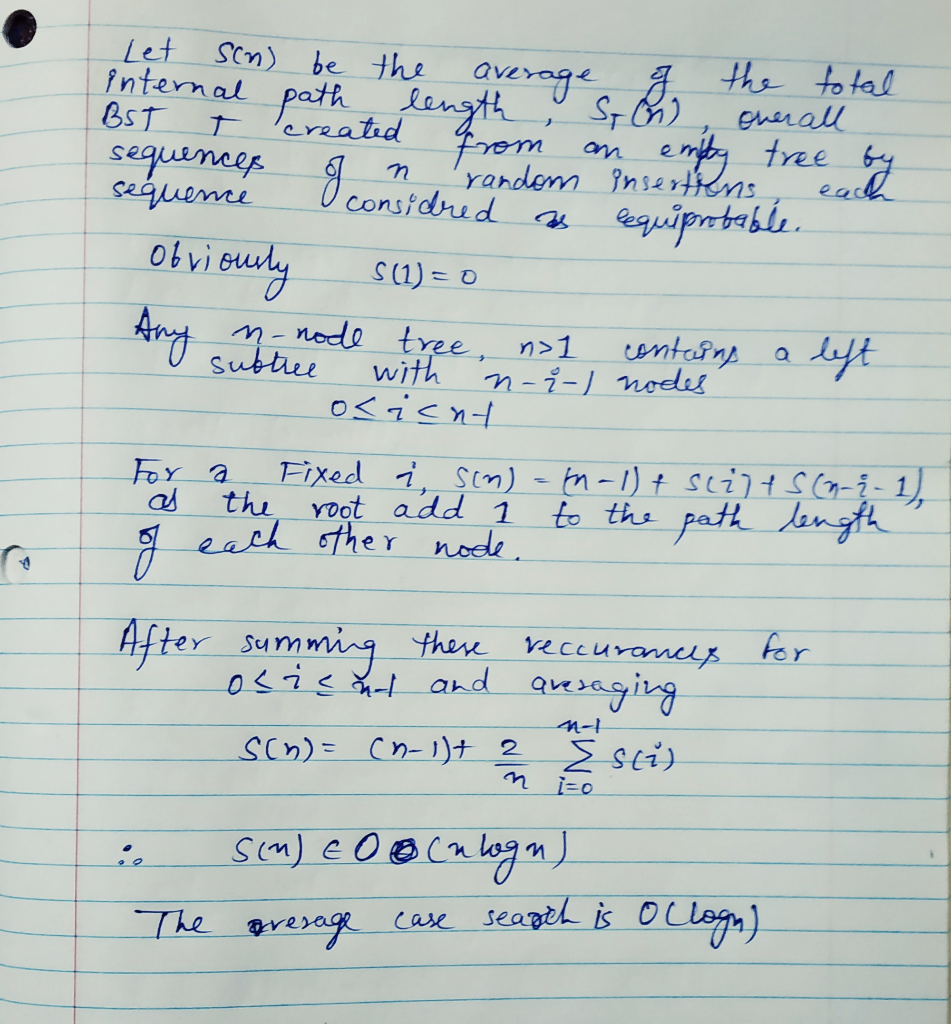 Let S(n) be the average of the total
internal path length, S_T(n), overall
BST T created from an empty tree by
sequences of n random insertions, each
sequence considred as equiprobable.
Obviously S(1) = 0
Any n-node tree, n>1 contains a left
subtree with n-i-1 nodes
0≤i≤n-1
For a Fixed i, S(n) = (n-1) + S(i) + S(n-i-1),
as the root add 1 to the path length
of each other node.
After summing these reccurances for
0≤i≤n-1 and averaging
S(n) = (n-1) + 2/n \sum_{i=0}^{n-1} S(i)
∴ S(n) ∈ O(n log n)
The average case search is O(log n)